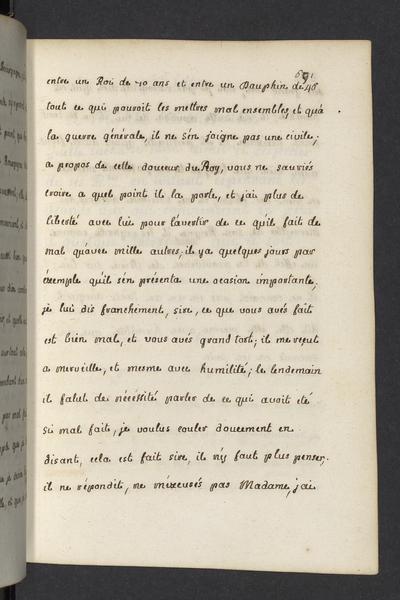 691
entre un Roi de 70 ans et entre un Dauphin de 46
tout ce qui pouroit les mettres mal ensembles, et qu'a
la guerre générale, il ne s'en joigne pas une civile;
a propos de cette douceur du Roy, vous ne sauriés
croire a quel point il la porte, et j'ai plus de
liberté avec lui pour l'avertir de ce qu'il fait de
mal qu'avec mille autres, il ya quelques jours par
éxemple qu'il s'en présenta une ocasion importante,
je lui dis franchement, sire, ce que vous avés fait
est bien mal, et vous avés grand tort; il me reçut
a merveille, et mesme avec humilité; le lendemain
il falut de nécéssité parler de ce qui avoit eté
si mal fait, je voulus couler doucement en
disant, cela est fait sire, il n'ÿ faut plus penser,
il ne répondit, ne m'éxcusés pas Madame, j'ai